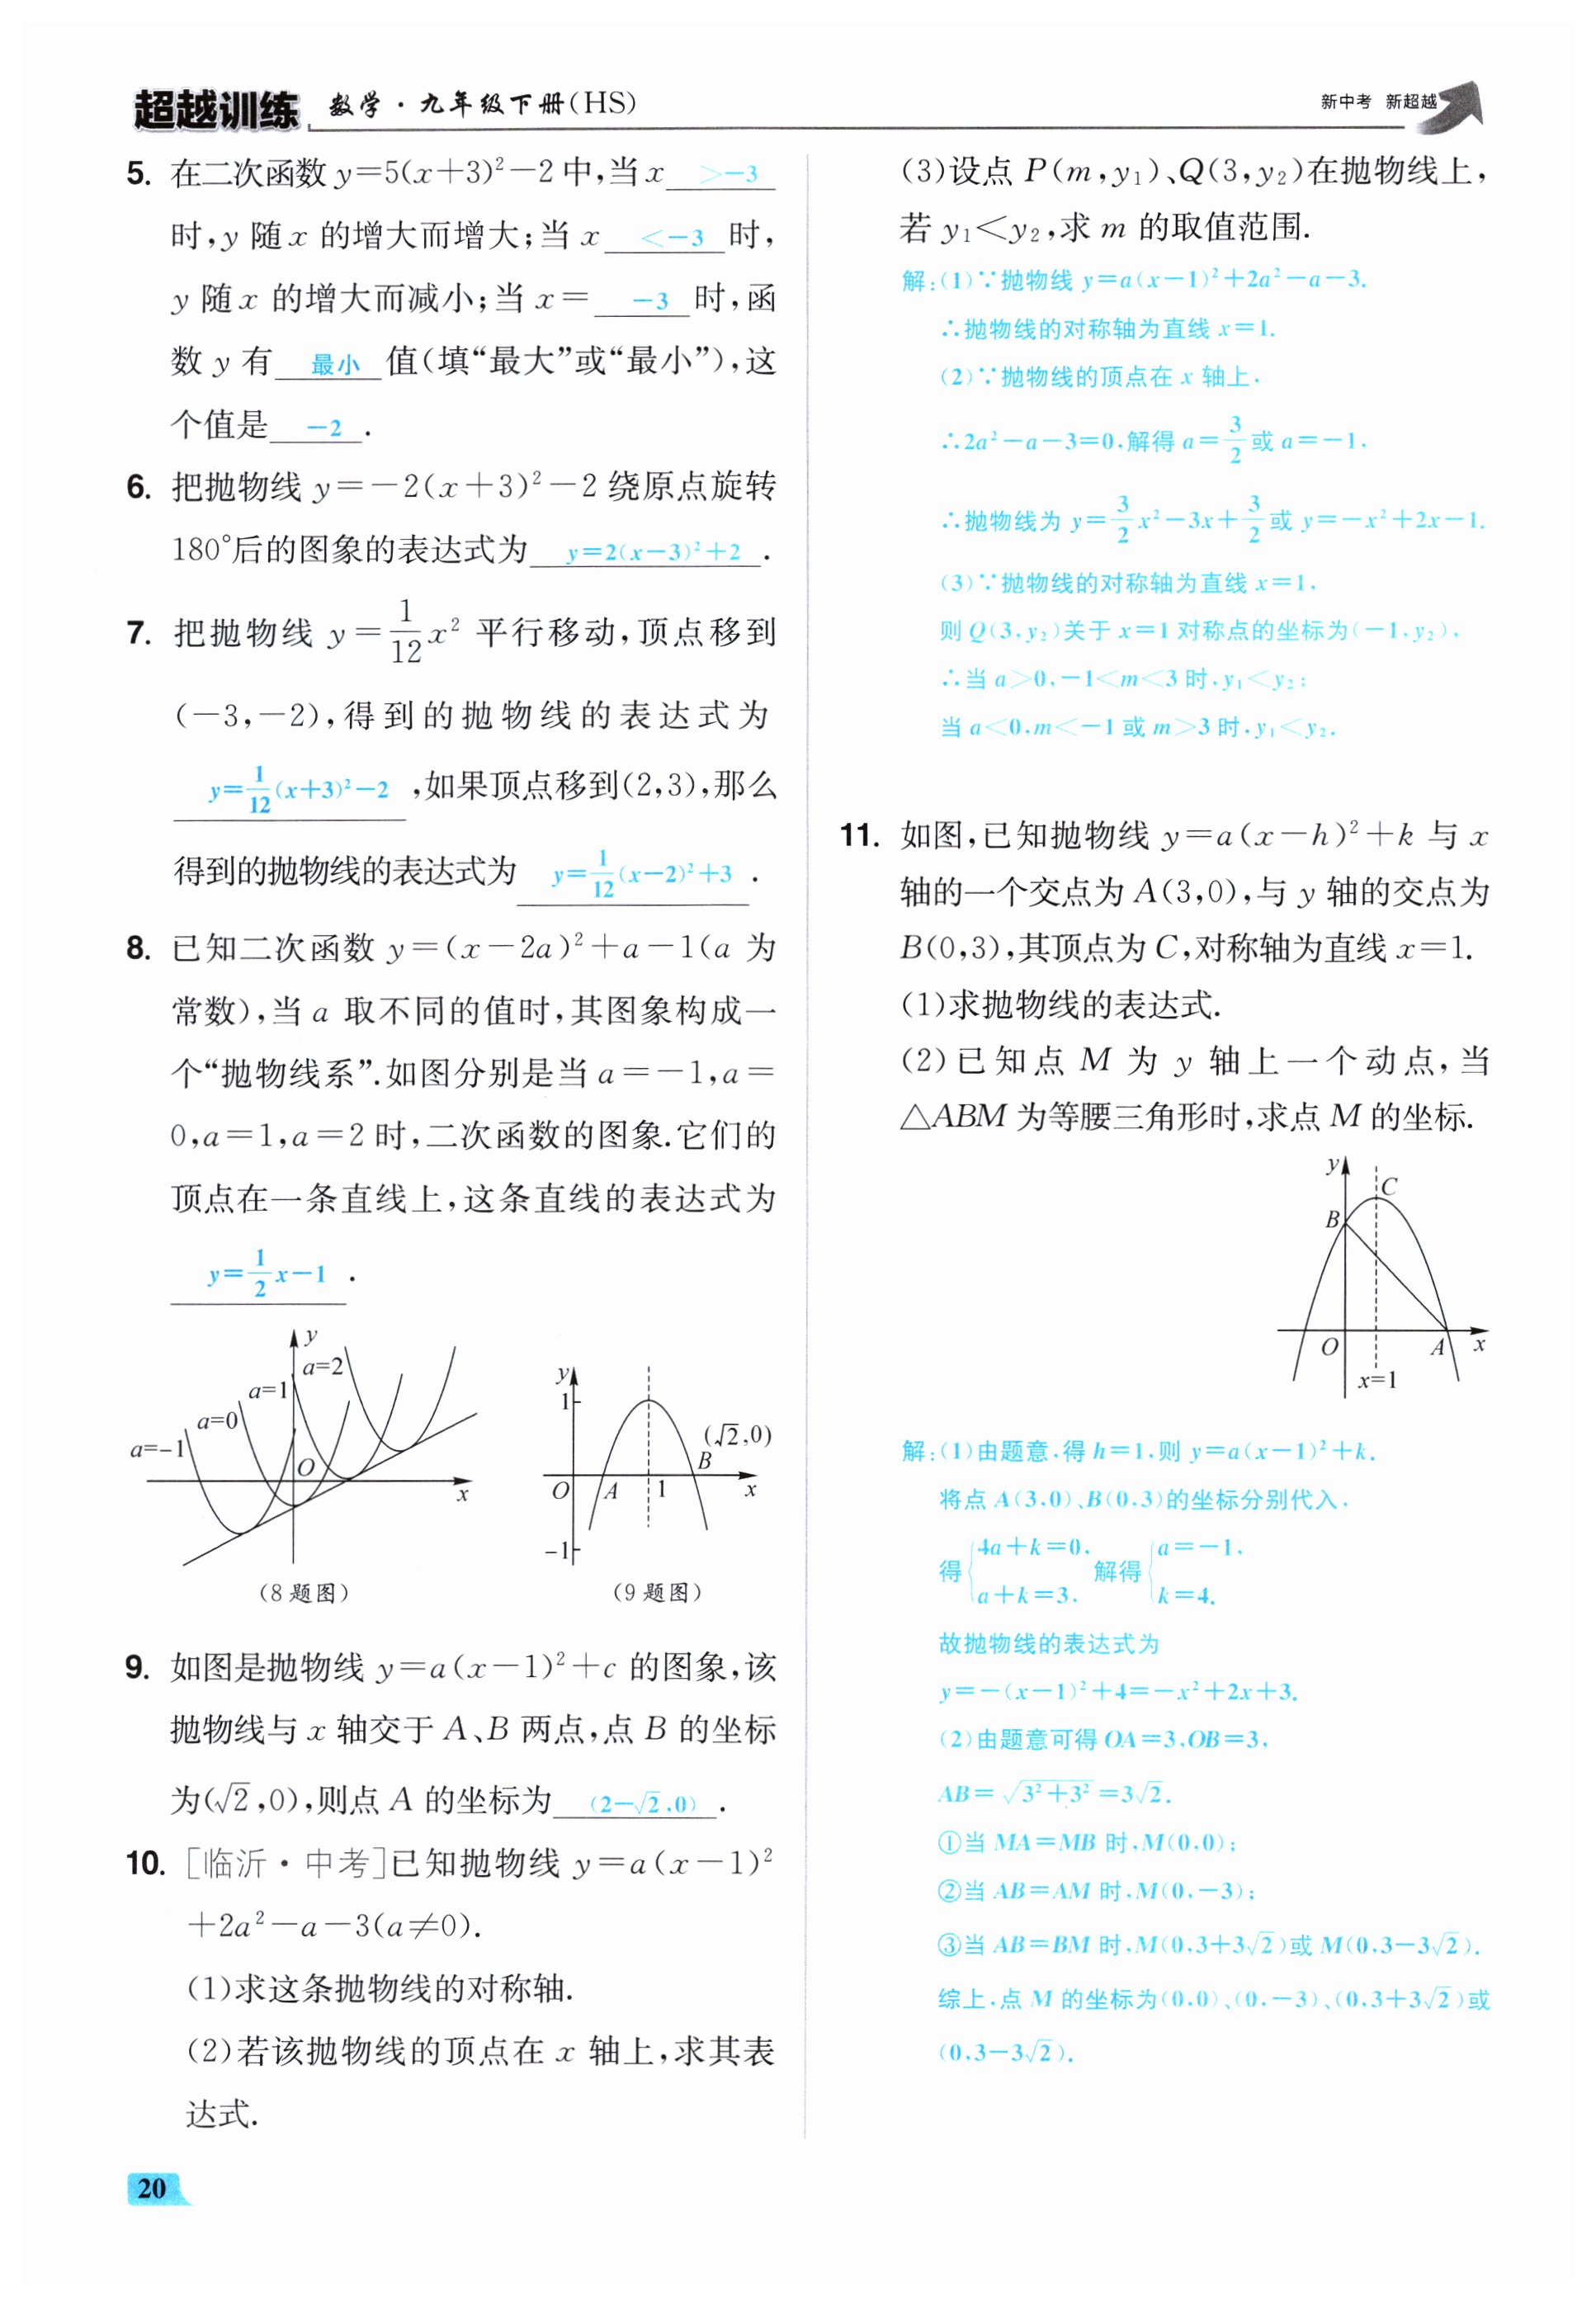 超越训练 数学·九年级下册(HS)
新中考 新超越
5. 在二次函数 y=5(x+3)²-2 中,当 x >-3
时,y 随 x 的增大而增大;当 x <-3 时,
y 随 x 的增大而减小;当 x= -3 时,函
数 y 有 最小 值(填“最大”或“最小”),这
个值是 -2 .
6. 把抛物线 y=-2(x+3)²-2 绕原点旋转
180°后的图象的表达式为 y=2(x-3)²+2 .
7. 把抛物线 y=1/12x² 平行移动,顶点移到
(-3,-2),得到的抛物线的表达式为
y=1/12(x+3)²-2 ,如果顶点移到(2,3),那么
得到的抛物线的表达式为 y=1/12(x-2)²+3 .
8. 已知二次函数 y=(x-2a)²+a-1(a 为
常数),当 a 取不同的值时,其图象构成一
个“抛物线系”.如图分别是当 a=-1,a=
0,a=1,a=2 时,二次函数的图象.它们的
顶点在一条直线上,这条直线的表达式为
y=1/2x-1 .
y
a=2
a=1
a=0
a=-1
O
x
(8 题图)
y
1
(√2,0)
B
O
A
1
x
-1
(9 题图)
9. 如图是抛物线 y=a(x-1)²+c 的图象,该
抛物线与 x 轴交于 A、B 两点,点 B 的坐标
为(√2,0),则点 A 的坐标为 (2-√2,0) .
10. [临沂·中考]已知抛物线 y=a(x-1)²
+2a²-a-3(a≠0).
(1)求这条抛物线的对称轴.
(2)若该抛物线的顶点在 x 轴上,求其表
达式.
20
(3)设点 P(m,y₁)、Q(3,y₂)在抛物线上,
若 y₁<y₂,求 m 的取值范围.
解:(1)∵抛物线 y=a(x-1)²+2a²-a-3.
∴抛物线的对称轴为直线 x=1.
(2)∵抛物线的顶点在 x 轴上,
∴2a²-a-3=0,解得 a=3/2或 a=-1,
∴抛物线为 y=3/2x²-3x+3/2或 y=-x²+2x-1.
(3)∵抛物线的对称轴为直线 x=1,
则 Q(3,y₂)关于 x=1 对称点的坐标为(-1,y₂),
∴当 a>0,-1<m<3 时,y₁<y₂;
当 a<0,m<-1 或 m>3 时,y₁<y₂.
11. 如图,已知抛物线 y=a(x-h)²+k 与 x
轴的一个交点为 A(3,0),与 y 轴的交点为
B(0,3),其顶点为 C,对称轴为直线 x=1.
(1)求抛物线的表达式.
(2)已知点 M 为 y 轴上一个动点,当
△ABM 为等腰三角形时,求点 M 的坐标.
y
C
B
O
A
x
x=1
解:(1)由题意,得 h=1,则 y=a(x-1)²+k.
将点 A(3,0)、B(0,3)的坐标分别代入,
得{4a+k=0, a+k=3. 解得{a=-1, k=4.
故抛物线的表达式为
y=-(x-1)²+4=-x²+2x+3.
(2)由题意可得 OA=3,OB=3,
AB=√(3²+3²)=3√2.
①当 MA=MB 时,M(0,0);
②当 AB=AM 时,M(0,-3);
③当 AB=BM 时,M(0,3+3√2)或 M(0,3-3√2).
综上,点 M 的坐标为(0,0)、(0,-3)、(0,3+3√2)或
(0,3-3√2).